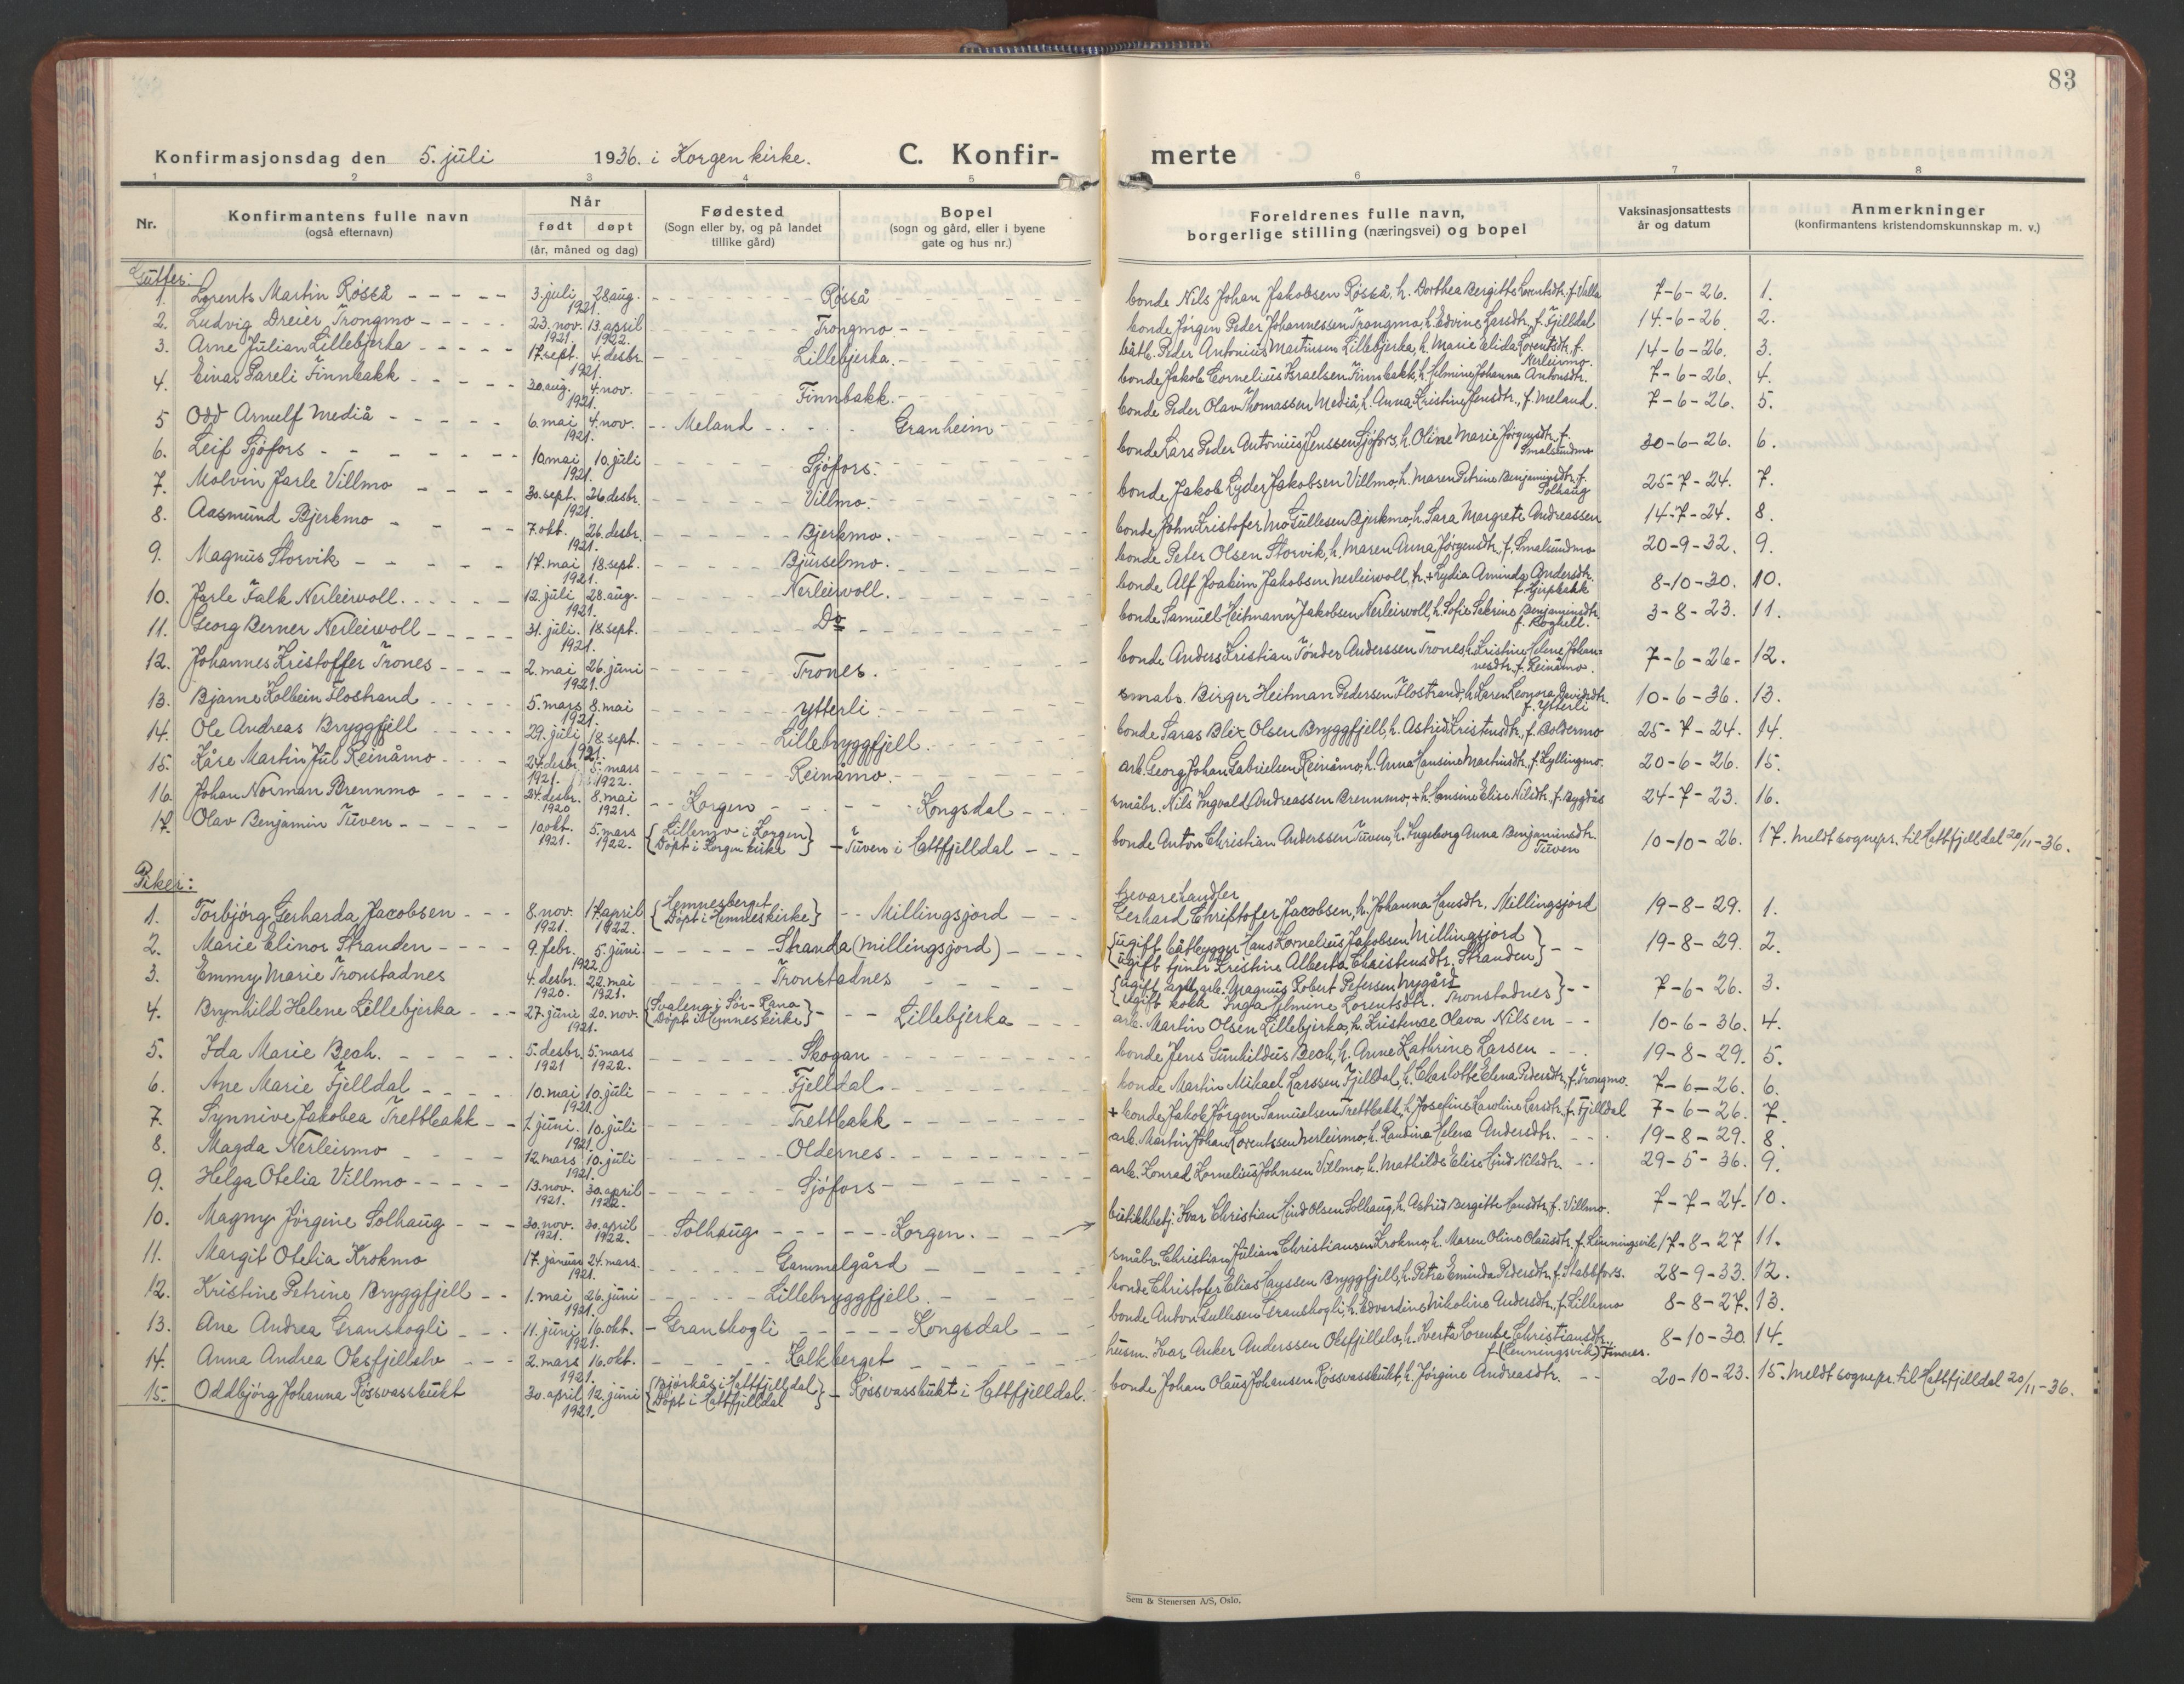 83
Konfirmasjonsdag den 5. juli 1936. i Korgen kirke. C. Konfirmerte
1 2 3 4 5 6 7 8
Nr. Konfirmantens fulle navn (også efternavn) Når født døpt (år, måned og dag) Fødested (Sogn eller by, og på landet tillike gård) Bopel (sogn og gård, eller i byene gate og hus nr.) Foreldrenes fulle navn, borgerlige stilling (næringsvei) og bopel Vaksinasjonsattests år og datum Anmerkninger (konfirmantens kristendomskunnskap m. v.)
Gutter:
1. Lorents Martin Røsså 3. juli 1921. 28 aug. Røsså bonde Nils Johan Jakobsen Røsså, h. Dorthea Bergitte Lorentsdtr. f. Valla 7-6-26. 1.
2. Ludvig Dreier Trongmo 23. nov. 1921. 13. april 1922. Trongmo bonde Jørgen Peder Johannessen Trongmo, h. Edvine Larsdtr. f. Fjelldal 14.-6-26. 2.
3. Arne Julian Lillebjerka 17. sept. 4. desbr. 1921. Lillebjerka. båtb. Peder Antonius Martinsen Lillebjerka, h. Marie Elida Lorentsdtr. f. Nerleirmo 14-6-26. 3.
4. Einar Sareli Finnbakk 20. aug. 4. nov. 1921. Finnbakk. bonde Jakob Cornelius Israelsen Finnbakk, h. Helmine Johanna Antonsdtr. 7-6-26. 4.
5 Odd Arnulf Mediå 6. mai 4. nov. 1921. Meland Granheim bonde Peder Olav Thomassen Mediå, h. Anna Kristine Jensdtr., f. Meland. 7-6-26. 5.
6. Leif Sjøfors 10. mai 10. juli 1921. Sjøfors. bonde Lars Peder Antonius Jenssen Sjøfors, h. Oline Marie Jørgensdtr. f. Smalsundmo 30-6-26. 6.
7. Molvin Jarle Villmo 30. sept. 26 desbr. 1921. Villmo. bonde Jakob Lyder Jakobsen Villmo, h. Maren Petrine Benjaminsdtr. f. Solhaug 25-7-24. 7.
8. Aasmund Bjerkmo 7. okt. 26. desbr. 1921. Bjerkmo. bonde John Kristofer Mo Gullesen Bjerkmo, h. Sara Margrete Andreassen 14-7-24. 8.
9. Magnus Storvik 17. mai 18. sept. 1921. Bjurselmo. bonde Peter Olsen Storvik, h. Maren Anna Jørgensdtr., f. Smalsundmo 20-9-32. 9.
10. Jarle Falk Nerleirvoll. 12. juli 28. aug. 1921. Nerleirvoll. bonde Alf Joakim Jakobsen Nerleirvoll, h. + Lydia Aminda Andersdtr. f. Hjerpbakk 8-10-30. 10.
11. Georg Berner Nerleirvoll 31. juli. 18. sept. 1921. Do bonde Samuel Heitmann Jakobsen Nerleirvoll, h. Sofie Sabrine Benjaminsdtr. 3-8-23. 11.
12. Johannes Kristoffer Trones 2. mai 26. juni 1921. Trones. bonde Anders Kristian Tønder Anderssen Trones, h. Kristine Helene Johannesdtr. f. Reinåmo. 7-6-26. 12.
13. Bjarne Kolbein Flostrand 5. mars 8. mai 1921. Ytterli. småbr. Birger Heitman Pedersen Flostrand, h. Karen Leonora Davidsdtr. f. Ytterli 10-6-36. 13.
14. Ole Andreas Bryggfjell 29. juli 18. sept. 1921. Lillebryggfjell. bonde Saras Blix Olsen Bryggfjell, h. Astrid Kristensdtr., f. Boldermo 25-7-24. 14.
15. Kåre Martin Jul Reinåmo 24. desbr. 1921. 5. mars 1922. Reinåmo. arb. Georg Johan Gabrielsen Reinåmo, h. Anna Hansine Martinsdtr., f. Kyllingmo. 20-6-26. 15.
16. Johan Norman Brennmo 24. desbr. 1920 8. mai 1921. Korgen Kongsdal småbr. Nils Ingvald Andreassen Brennmo, + h. Hansine Elise Nilsdtr., f. Bygdås 24-7-23. 16.
17. Olav Benjamin Tuven 10. okt. 1921. 5. mars 1922. {Lillemo i Korgen Døpt i Korgen kirke} Tuven i Hattfjelldal bonde Anton Christian Anderssen Tuven, h. Ingeborg Anna Benjaminsdtr. Tuven 10-10-26. 17. Meldt sognepr. til Hattfjelldal 20/11-36.
Piker:
1. Torbjørg Gerharda Jacobsen 8. nov. 1921. 17. april 1922. {Hemnesberget Døpt i Hemneskirke} Millingsjord bevarehandler Gerhard Christofer Jacobsen, h. Johanna Hansdtr. Millingsjord 19-8-29. 1.
2. Marie Elinor Stranden 9. febr. 5. juni. 1922. Stranda (Millingsjord) {ugift båtbygger Hans Kornelius Jakobsen Millingsjord ugift tjener Kristine Alberta Christensdtr. Stranden} 19-8-29. 2.
3. Emmy Marie Tronstadnes 4. desbr. 1920. 22. mai 1921. Tronstadnes {ugift anl. arb. Magnus Robert Petersen Nygård ugift kokk Inga Helmine Lorentsdtr. Tronstadnes} 7-6-26. 3.
4. Brynhild Helene Lillebjerka 27. juni 20. nov. 1921. {Svaleng i Sør-Rana Døpt i Hemneskirke} Lillebjerka arb. Martin Olsen Lillebjerka, h. Kristense Olava Nilsen 10-6-36. 4.
5. Ida Marie Bech. 5. desbr. 1921 5. mars 1922. Skogan bonde Jens Gunhildius Bech, h. Anne Kathrine Larsen 19-8-29. 5.
6. Ane Marie Fjelldal 10. mai 10. juli 1921. Fjelldal bonde Martin Mikael Larssen Fjelldal, h. Charlotte Elena Pedersdtr., f. Trongmo. 7-6-26. 6.
7. Synnive Jakobea Trettbakk 1. juni. 10. juli 1921. Trettbakk + bonde Jakob Jørgen Samuelsen Trettbakk, h. Josefine Karoline Larsdtr., f. Fjelldal 7-6-26. 7.
8. Magda Nerleirmo 12. mars 10. juli 1921. Oldernes arb. Martin Johan Lorentssen Nerleirmo, h. Raudina Helena Andersdtr. 19-8-29. 8.
9. Helga Otelia Villmo 13. nov. 1921. 30. april 1922. Sjøfors arb. Konrad Kornelius Johnsen Villmo, h. Mathilde Elise Hjud Nilsdtr. 29-5-36. 9.
10. Magny Jørgine Solhaug 30. nov. 1921. 30. april 1922. Solhaug Korgen. butikkbetj. Ivar Christian Hind Olsen Solhaug, h. Astrid Bergitte Hansdtr., f. Villmo. 7-7-24. 10.
11. Margit Otelia Krokmo 17. januar 24. mars. 1921. Gammelgård småbr. Christian Julian Christiansen Krokmo, h. Maren Oline Olausdtr., f. Lenningsvik 17-8-27 11.
12. Kristine Petrine Bryggfjell 1. mai 26. juni 1921. Lillebryggfjell. bonde Christofer Elias Hayssen Bryggfjell, h. Petra Eminda Pedersdtr., f. Stabbfors. 28-9-33. 12.
13. Ane Andrea Granskogli 11. juni 16. okt. 1921. Granskogli Kongsdal bonde Anton Gullesen Granskogli, h. Edvardine Nikoline Andersdtr., f. Lillemo 8-8-27. 13.
14. Anna Andrea Oksfjellelv 2. mars 16. okt. 1921. Kalkberget husm. Ivar Anker Anderssen Oksfjellelv, h. Iverta Lorentse Christiansdtr., f. (Lenningsvik) Finnes. 8-10-30. 14.
15. Oddbjørg Johanna Røssvassbukt 30. april 12. juni 1921. {Bjørkås i Hattfjelldal Døpt i Hattfjelldal} Røssvassbukt i Hattfjelldal. bonde Johan Olaus Johansen Røssvassbukt, h. Jørgine Andreasdtr. 20-10-23. 15. Meldt sognepr. til Hattfjelldal 20/11-36.
Sem & Stenersen A/S, Oslo.